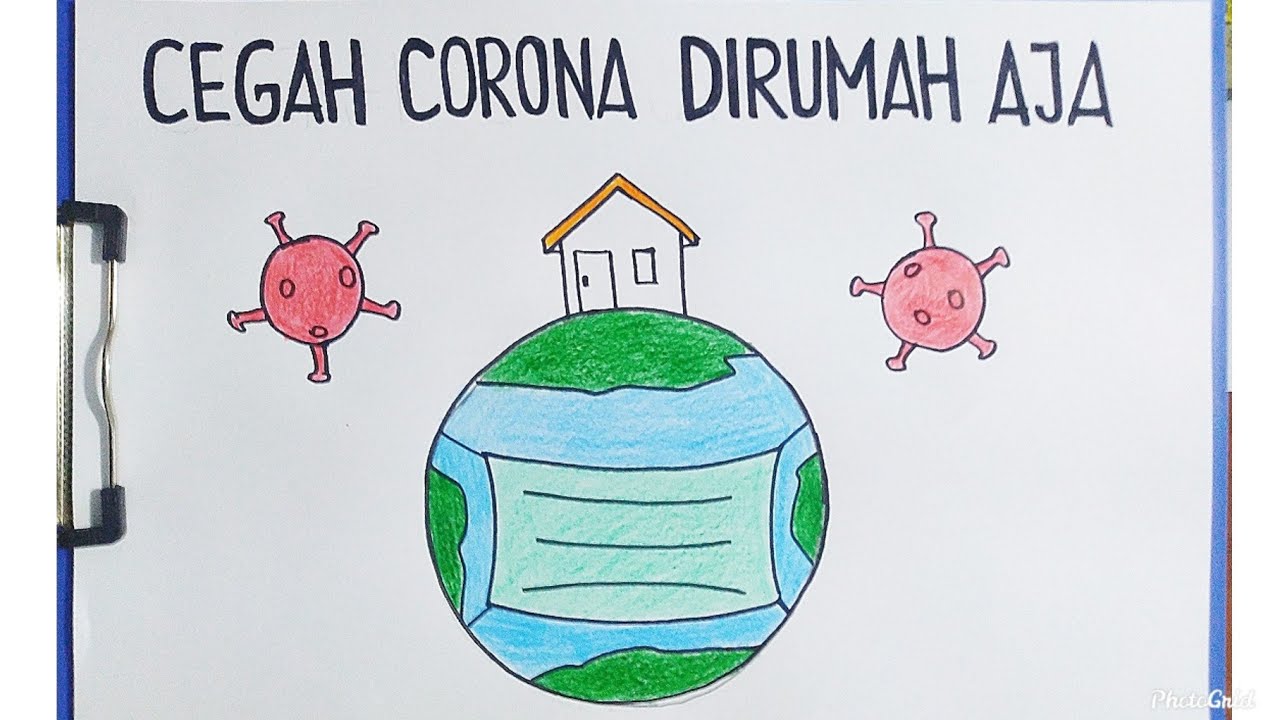 CEGAH CORONA DIRUMAH AJA
PhotoGrid